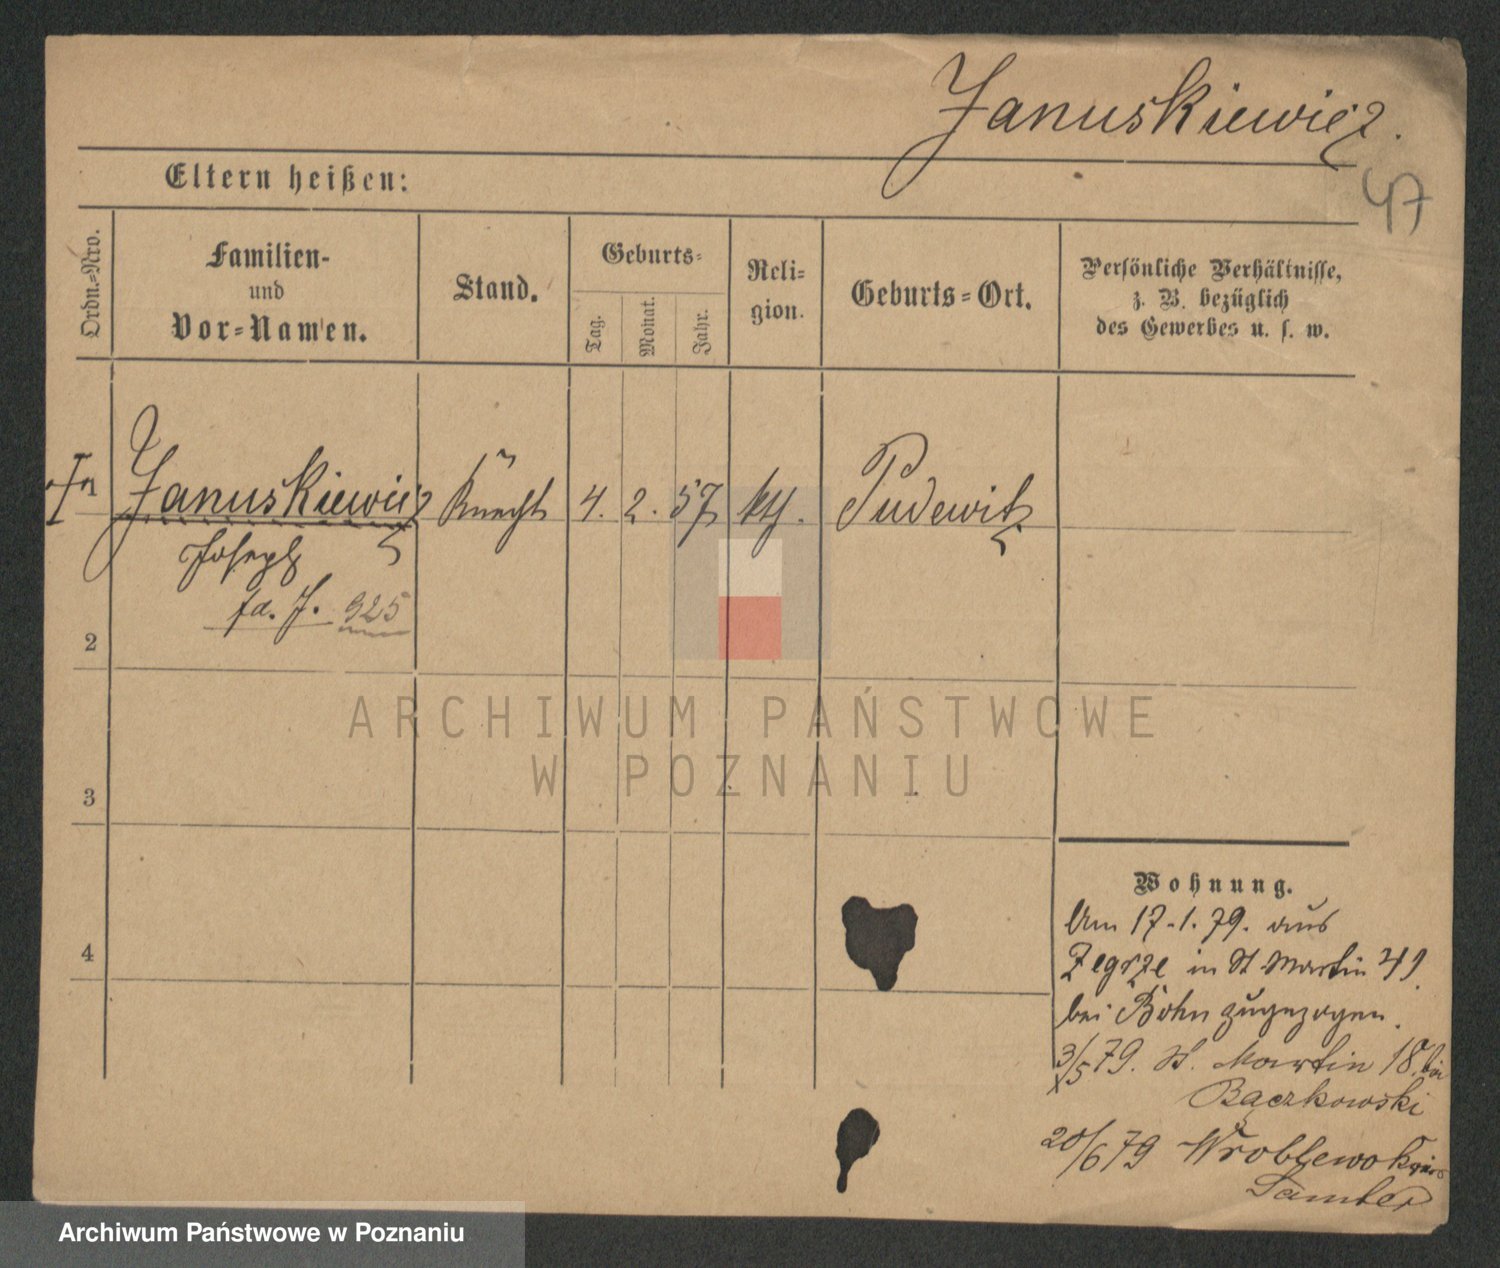 Januskiewicz.
47
Eltern heißen:
Ordn.-Nro.
Familien-
und
Vor-Namen.
Stand.
Geburts-
Tag.
Monat.
Jahr.
Reli-
gion.
Geburts-Ort.
Persönliche Verhältnisse,
z. B. bezüglich
des Gewerbes u. s. w.
Januskiewicz Knecht 4. 2. 57 kth. Pudewitz
Joseph
fd. J. 925
2
3
4
Wohnung.
Am 17.1.79. aus
Zegrze in St Martin 41
bei Böhn zugezogen.
3/5 79. St. Martin 18. bei
Baczkowski
20/6 79 Wroblewo Kreis
Samter
ARCHIWUM PAŃSTWOWE
W POZNANIU
Archiwum Państwowe w Poznaniu